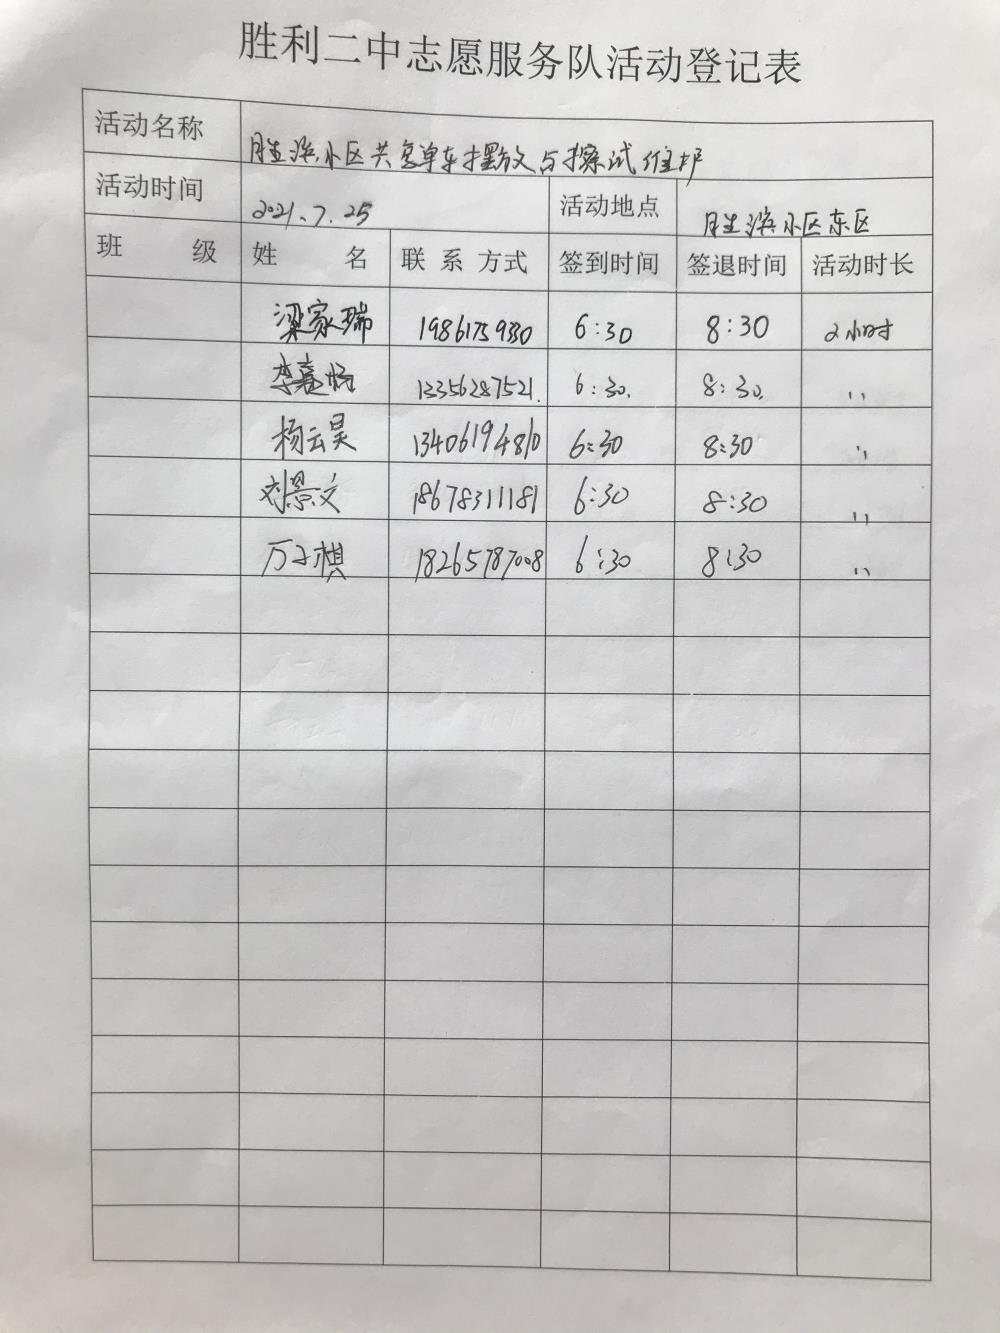 胜利二中志愿服务队活动登记表
活动名称 胜滨小区共享单车摆放与擦试维护
活动时间 2021.7.25 活动地点 胜滨小区东区
班 级 姓 名 联 系 方式 签到时间 签退时间 活动时长
梁家瑞 19861759330 6:30 8:30 2小时
李嘉 13356287521. 6:30. 8:30. ''
杨云昊 13406194810 6:30 8:30 ''
刘景文 18678311181 6:30 8:30 ''
万子棋 18265787008 6:30 8:30 ''